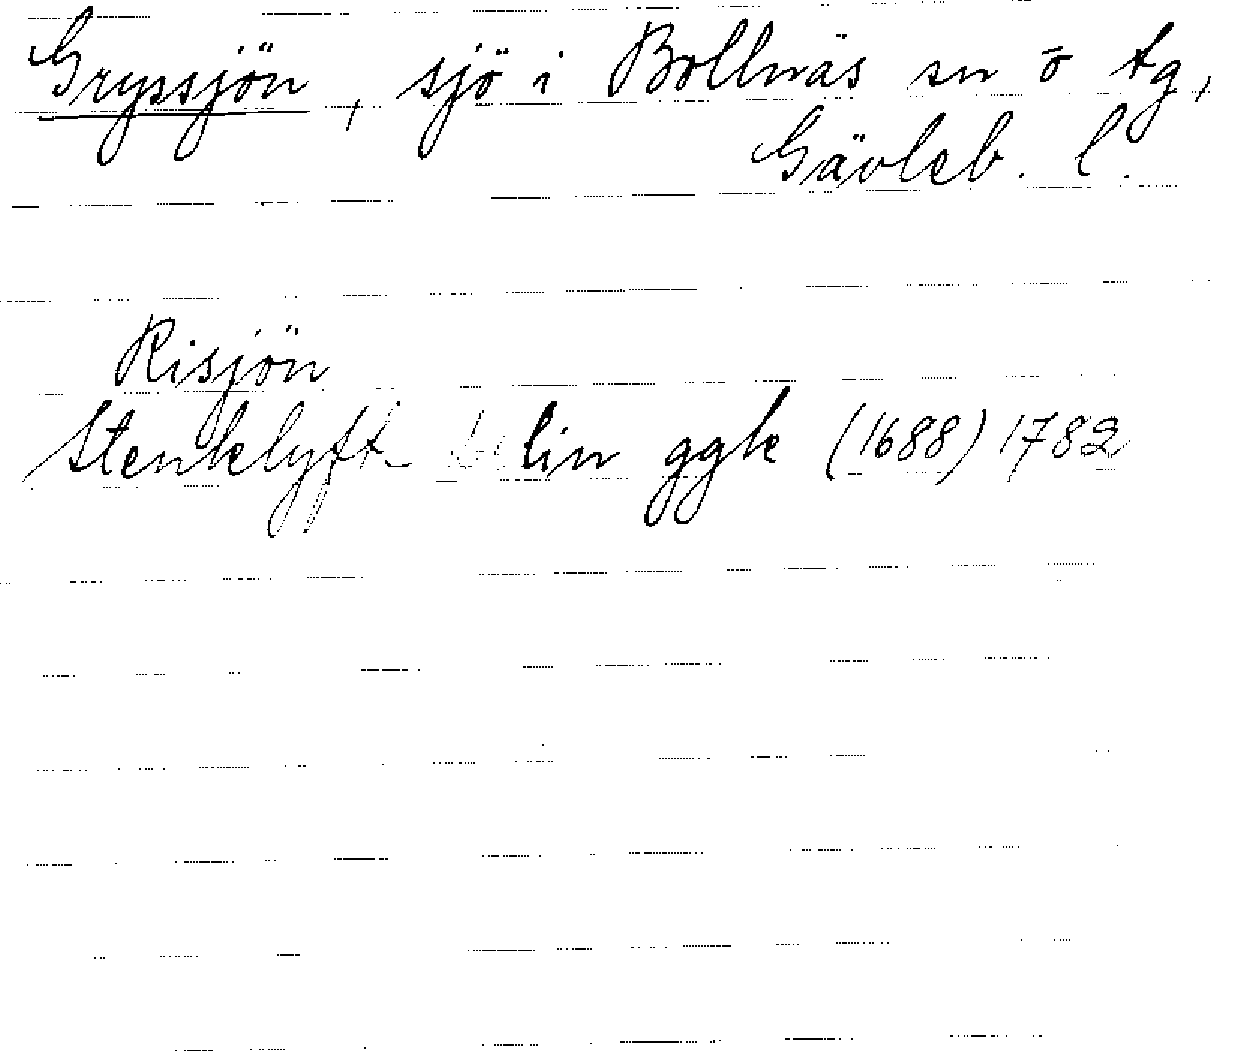 Gryssjön, sjö i Bollnäs sn o tg,
Gävleb. l.
Risjön
Stenklyft lin ggk (1688) 1782